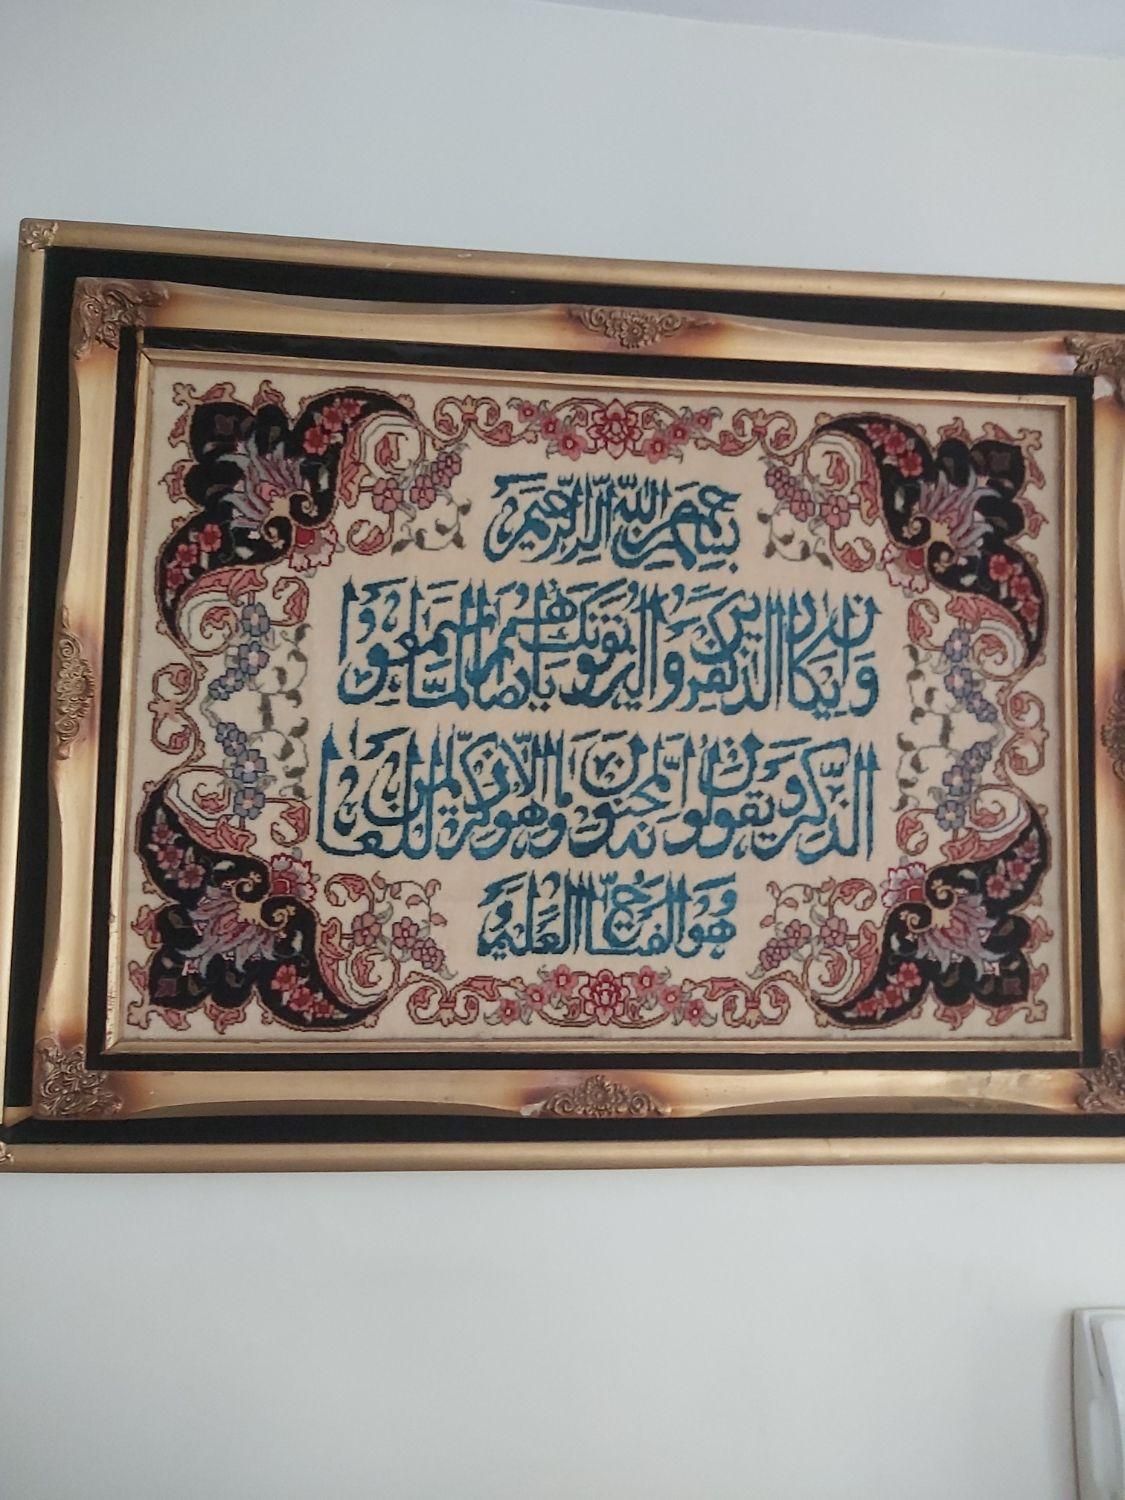 بسم الله الرحمن الرحيم
وان يكاد الذين كفروا ليزلقونك بابصارهم لما سمعوا
الذكر ويقولون انه لمجنون وما هو الا ذكر للعالمين
هو الفتاح العليم